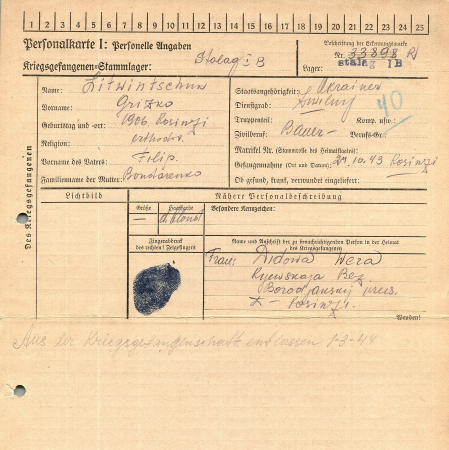 1 2 3 4 5 6 7 8 9 10 11 12 13 14 15 16 17 18 19 20 21 22 23 24 25
Personalkarte I: Personelle Angaben
Beschriftung der Erkennungsmarke
Nr. 33898
Kriegsgefangenen-Stammlager: Stalag I B
Lager: Stalag IB
Des Kriegsgefangenen
Name: Litwintschuk
Vorname: Grizko
Geburtstag und -ort: 1906 Rosinzi
Religion: orthodox.
Vorname des Vaters: Filip.
Familienname der Mutter: Bondarenko
Staatsangehörigkeit: Ukrainer
Dienstgrad:
Truppenteil: Komp. usw.:
40
Zivilberuf: Bauer Berufs-Gr.:
Matrikel Nr. (Stammrolle des Heimatstaates):
Gefangennahme (Ort und Datum): 24.10.43 Rosinzi
Ob gesund, krank, verwundet eingeliefert:
Lichtbild
Nähere Personalbeschreibung
Größe
Haarfarbe
d.blond
Besondere Kennzeichen:
Fingerabdruck
des rechten! Zeigefingers
Name und Anschrift der zu benachrichtigenden Person in der Heimat
des Kriegsgefangenen
Frau: Didowa Wera
Kyewskaja Bez
Borodjanskij
Rosinzi.
Wenden!
Aus der Kriegsgefangenschaft entlassen 1-3-44